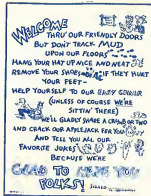 WELCOME
THRU OUR FRIENDLY DOORS
BUT DON'T TRACK MUD
UPON OUR FLOORS
HANG YOUR HAT UP NICE AND NEAT
REMOVE YOUR SHOES IF THEY HURT
YOUR FEET-
HELP YOURSELF TO OUR EASY CHAIR
(UNLESS OF COURSE WE'RE
SITTIN' THERE)
WE'LL GLADLY SHARE A CRAB OR TWO
AND CRACK OUR APPLEJACK FER YOU
AND TELL YOU ALL OUR
FAVORITE JOKES
BECAUSE WE'RE
GLAD TO HAVE YOU
FOLKS!
SIGNED